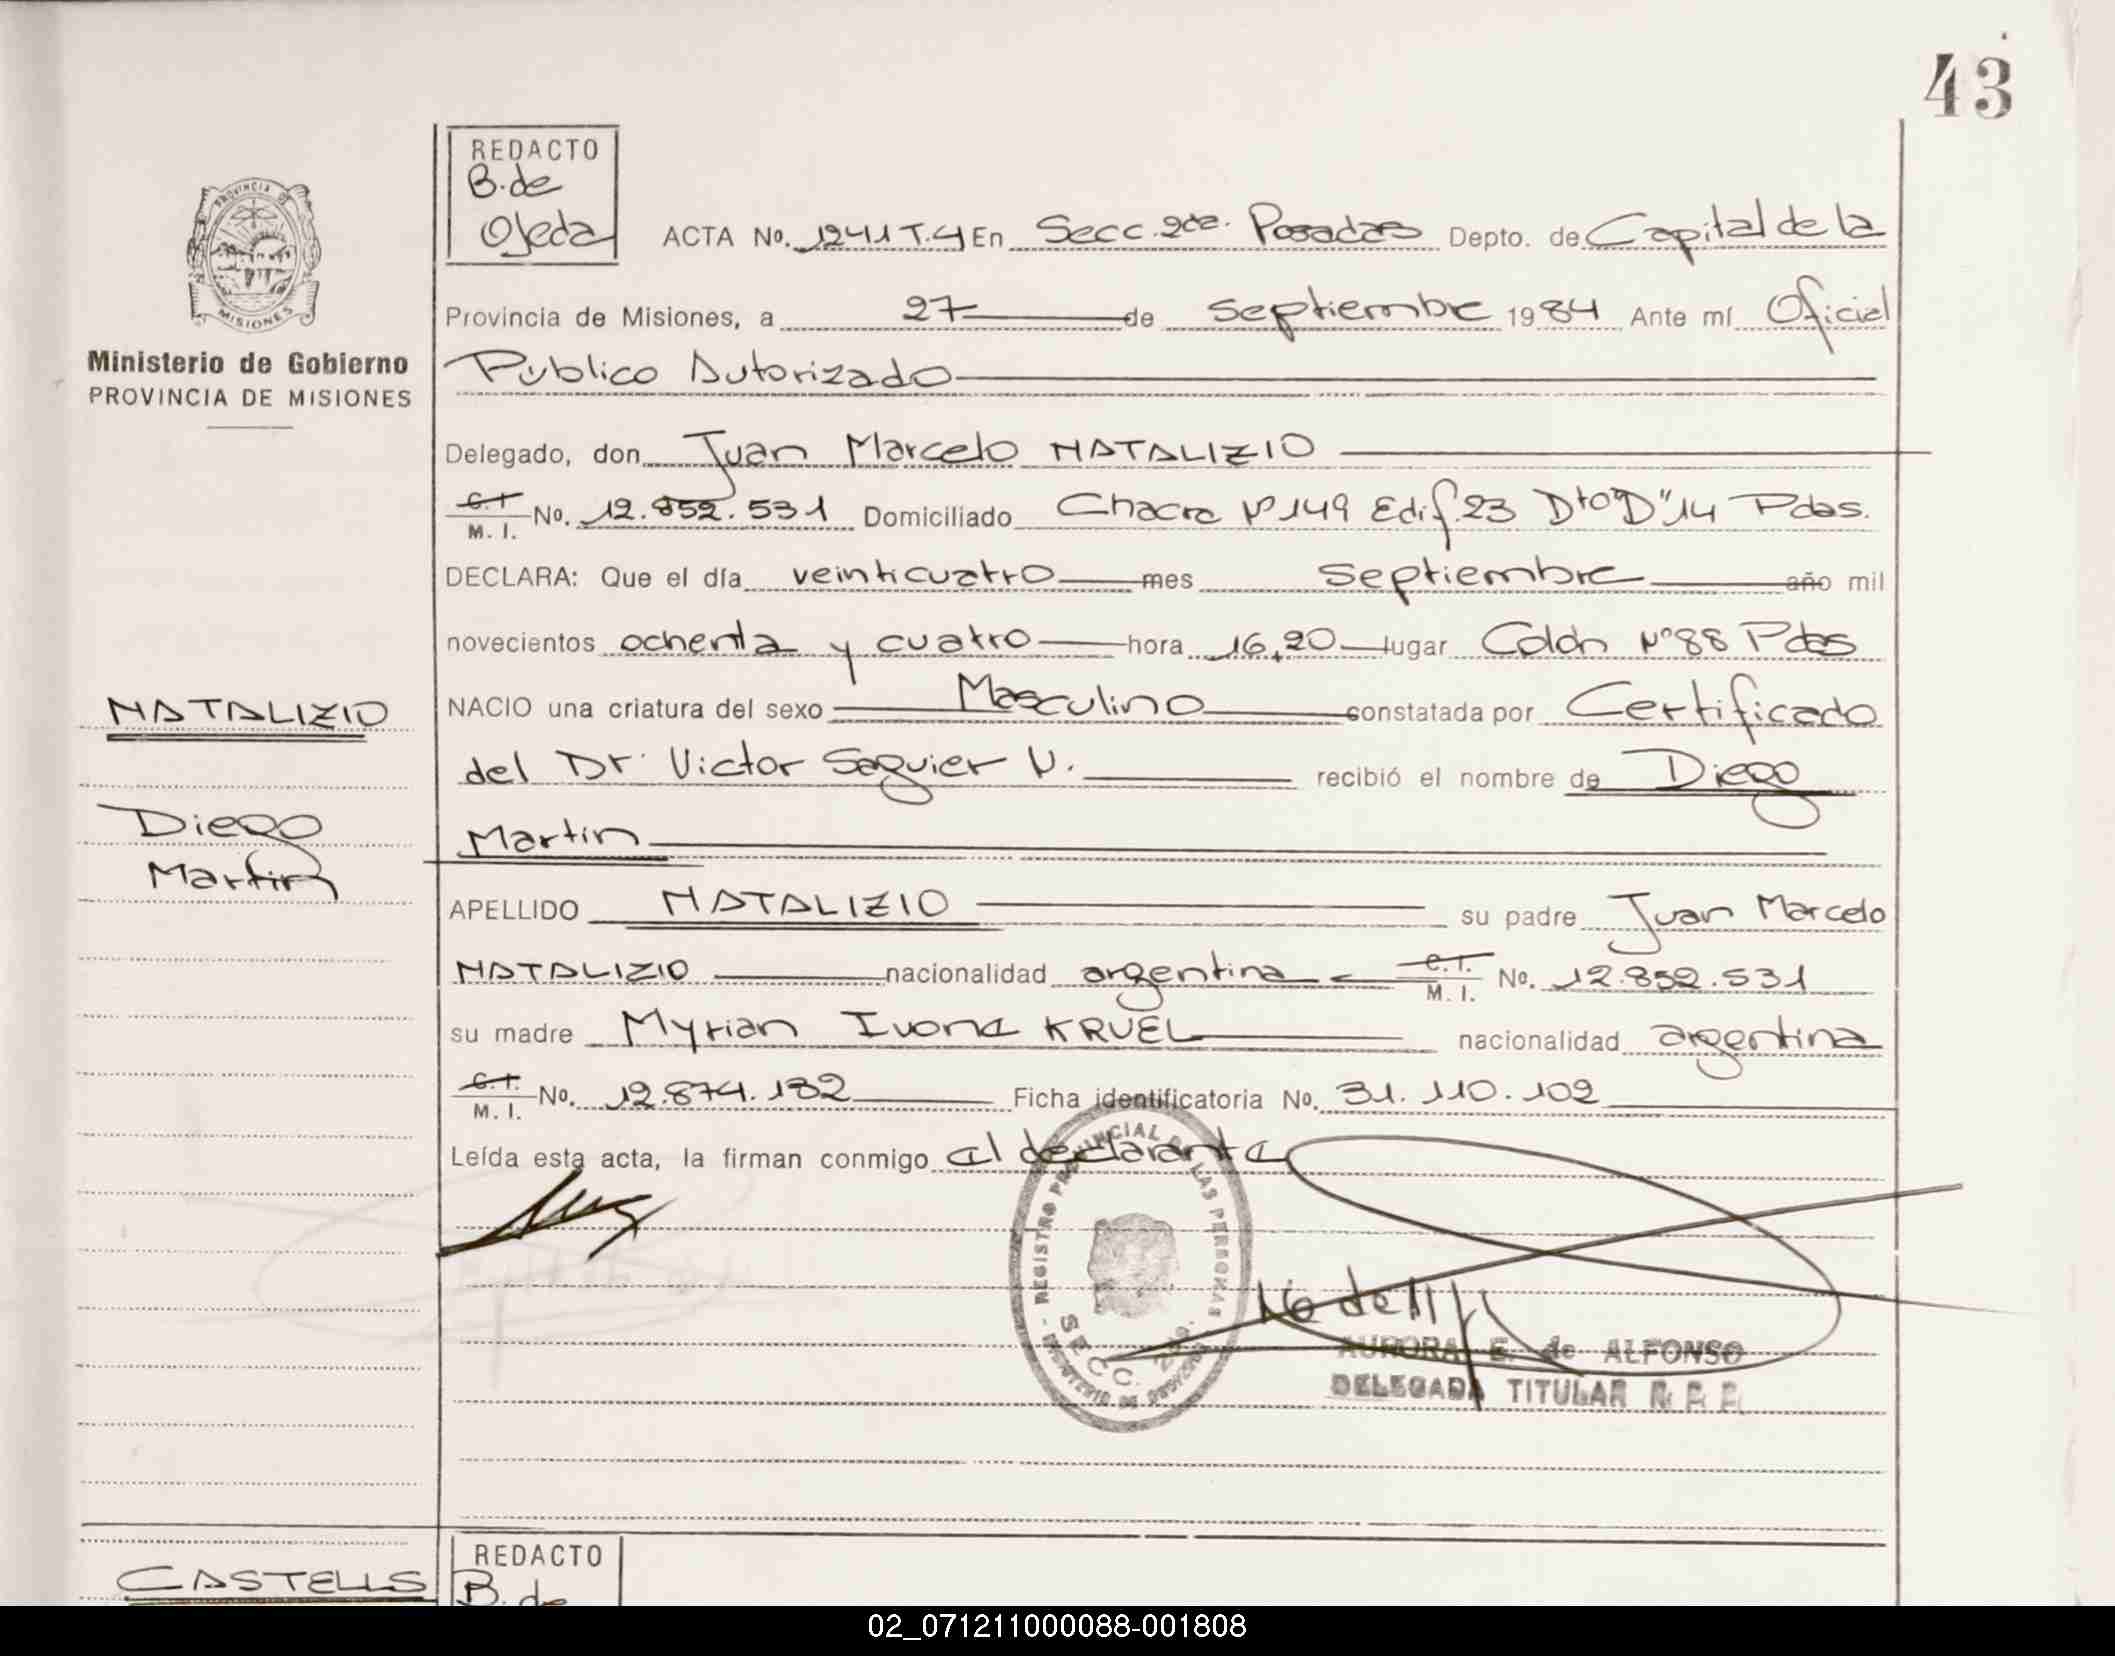 43
REDACTO
B. de
Ojeda
PROVINCIA DE
MISIONES
Ministerio de Gobierno
PROVINCIA DE MISIONES
ACTA No. 1241 T.4 En Secc. 2da. Posadas Depto. de Capital de la
Provincia de Misiones, a 27 de Septiembre 1984 Ante mí Oficial
Publico Autorizado
Delegado, don Juan Marcelo NATALIZIO
C.I. M. I. No. 12.852.531 Domiciliado Chacra Nº 149 Edif. 23 Dto "D" 14 Pdas.
DECLARA: Que el día veinticuatro mes Septiembre año mil
novecientos ochenta y cuatro hora 16,20 lugar Colón Nº 88 Pdas
NATALIZIO
NACIO una criatura del sexo Masculino constatada por Certificado
del Dr. Victor Saguier N. recibió el nombre de Diego
Diego
Martin
Martin
APELLIDO NATALIZIO su padre Juan Marcelo
NATALIZIO nacionalidad argentina C.I. M. I. No. 12.852.531
su madre Myrian Ivone KRUEL nacionalidad argentina
C.I. M. I. No. 12.874.132 Ficha identificatoria No. 31.110.102
Leída esta acta, la firman conmigo el declarante
REGISTRO PROVINCIAL DE LAS PERSONAS
SECC. 2da.
MINISTERIO DE GOBIERNO
AURORA E. de ALFONSO
DELEGADA TITULAR R. P. P.
CASTELLS
REDACTO
B. de
02_071211000088-001808